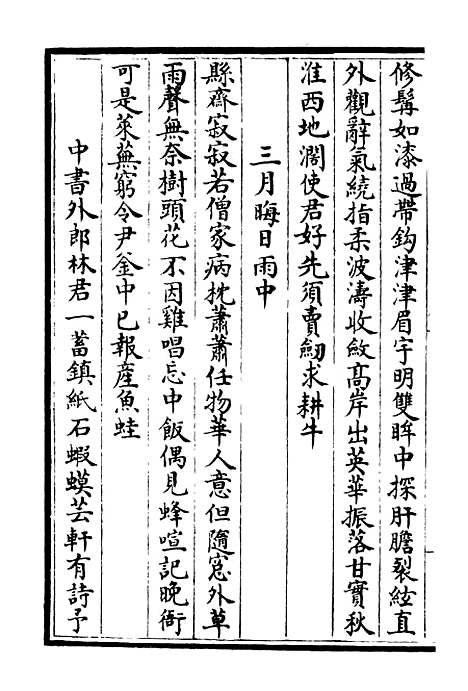 修髯如漆過帶鈎津津眉宇明雙眸中探肝膽裂絃直
外觀辭氣繞指柔波濤收斂高岸出英華振落甘實秋
淮西地濶使君好先須賣劒求耕牛
三月晦日雨中
縣齋寂寂若僧家病枕蕭蕭任物華人意但隨窓外草
雨聲無奈樹頭花不因雞唱忘中飯偶見蜂喧記晚衙
可是萊蕪窮令尹釜中已報産魚蛙
中書外郎林君一蓄鎮紙石蝦蟆芸軒有詩予